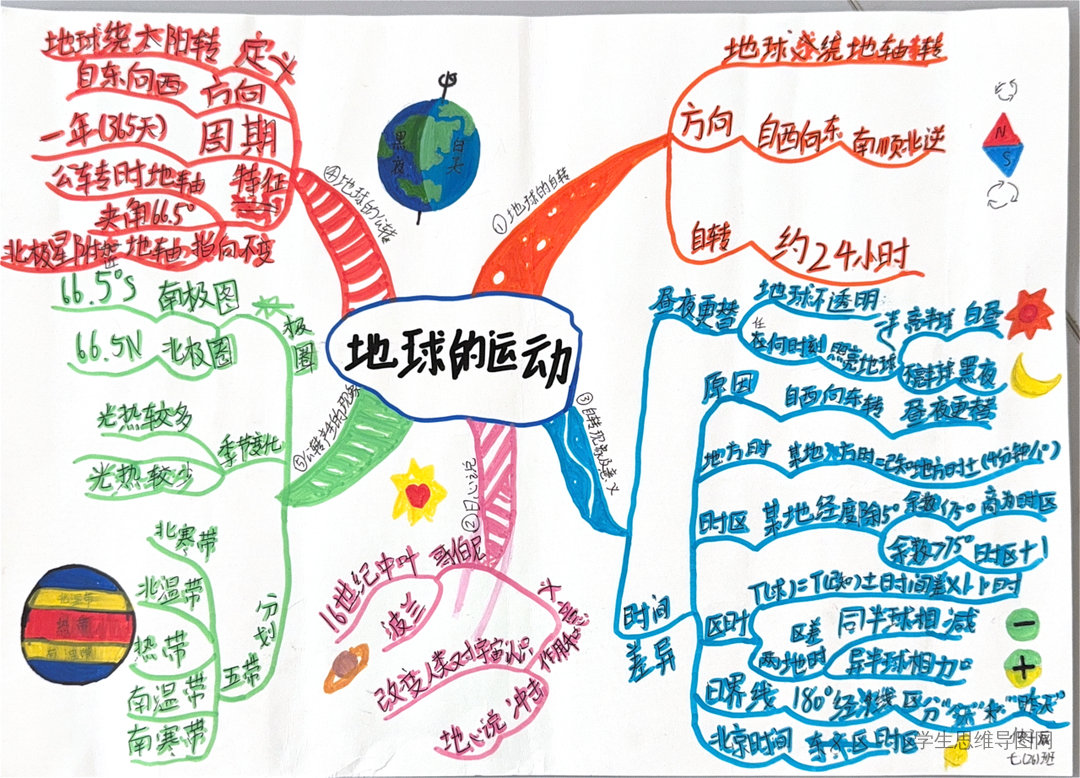 地球的运动
①地球的自转
地球绕地轴转
方向
自西向东
南顺北逆
自转
约24小时
N
S
黑夜
白天
②日心说
哥伯尼
16世纪中叶
波兰
作用和意义
改变人类对宇宙认识
地心说 冲击
③自转现象及意义
昼夜更替
地球不透明
任
在何时刻
照亮地球
一半
亮半球 白昼
黑夜
原因
自西向东转
昼夜更替
时间差异
地方时
某地地方时=已知地方时±(4分钟/1°)
时区
某地经度除15°
余数<7.5°
商为时区
余数>7.5°
时区+1
区时
T(求)=T(已知)±时间差×1小时
区差
两地时
同半球相减
异半球相加
日界线
180°经线
区分“今天”和“昨天”
北京时间
东八区时区
④地球的公转
地球绕太阳转
定义
自东向西
方向
一年(365天)
周期
公转时地轴
特征
夹角66.5°
北极星附近
地轴
指向不变
⑤公转产生的现象
极圈
66.5°S
南极圈
66.5N
北极圈
季节变化
光热较多
光热较少
划分五带
北寒带
北温带
热带
南温带
南寒带
北温带
热带
南温带
学生思维导图网
七(26)班